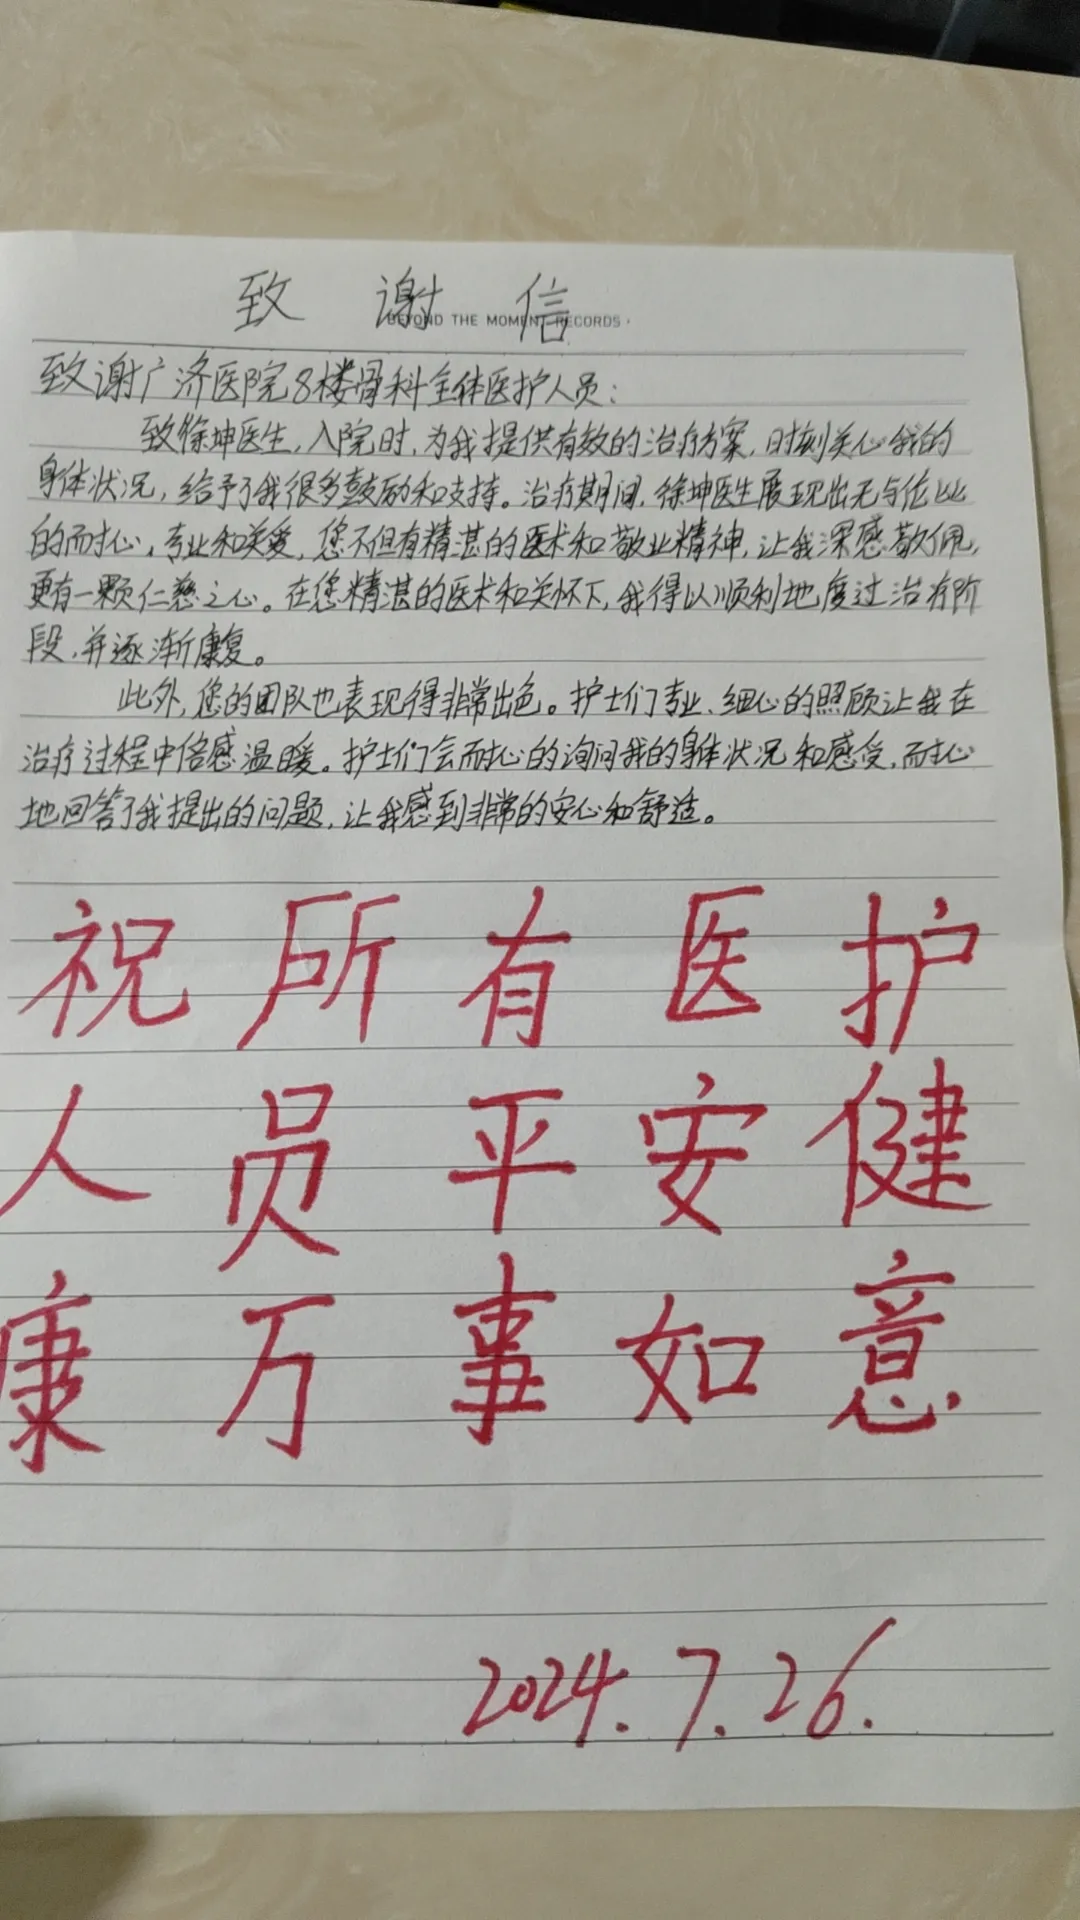 致谢信
BEYOND THE MOMENT RECORDS
致谢广济医院8楼骨科全体医护人员：
致徐坤医生，入院时，为我提供有效的治疗方案，时刻关心我的
身体状况，给予了我很多鼓励和支持。治疗期间，徐坤医生展现出无与伦比
的耐心，专业和关爱，您不但有精湛的医术和敬业精神，让我深感敬佩，
更有一颗仁慈之心。在您精湛的医术和关怀下，我得以顺利地度过治疗阶
段，并逐渐康复。
此外，您的团队也表现得非常出色。护士们专业、细心的照顾让我在
治疗过程中倍感温暖。护士们会耐心的询问我的身体状况和感受，耐心
地回答了我提出的问题，让我感到非常的安心和舒适。
祝所有医护
人员平安健
康万事如意
2024.7.26.